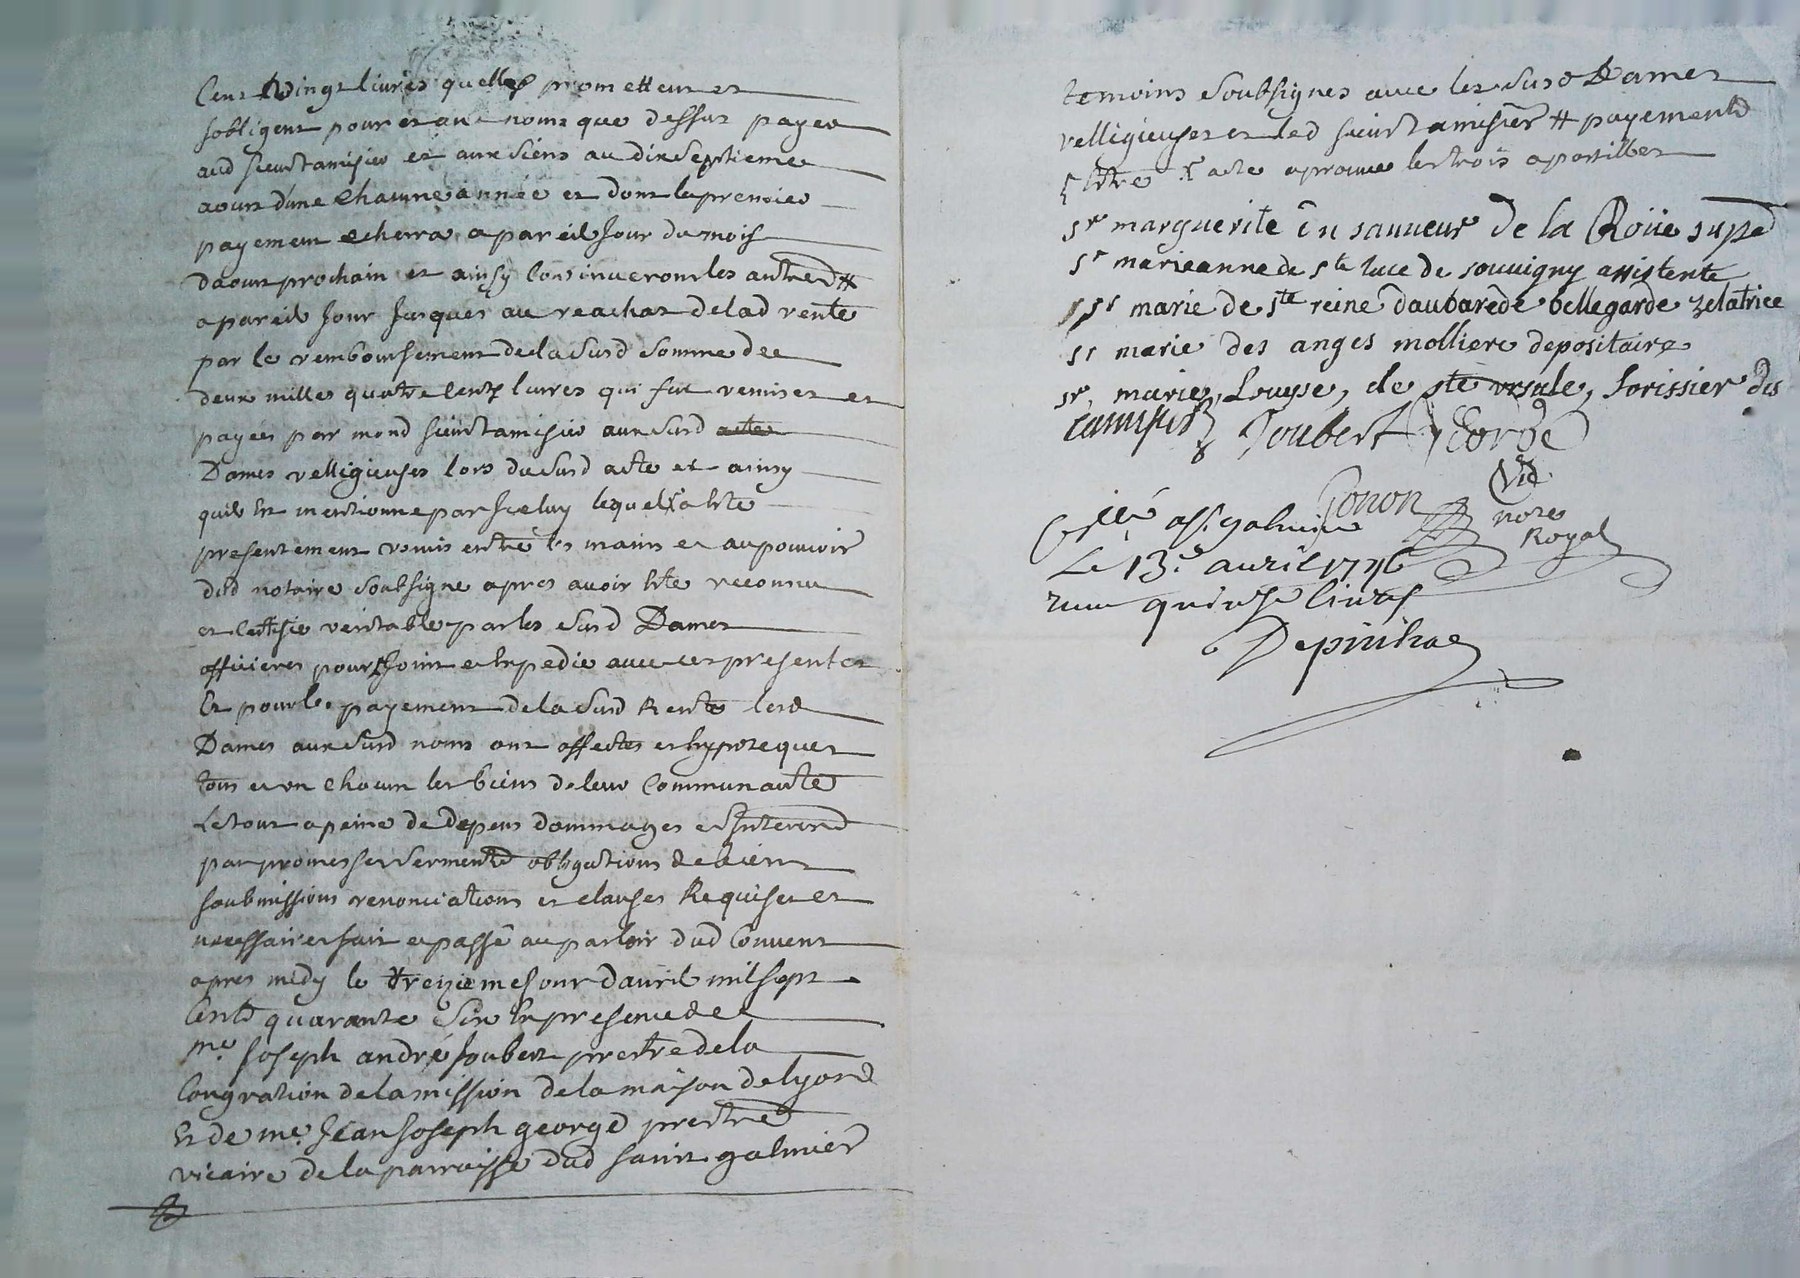 Cent vingt livres quelles promettent et
sobligent pour et au noms que dessus payer
aud sieur tamisier et aux siens au dix septieme
aoust dune chacune année et dont le premier
payement echerra a pareil jour du mois
daoust prochain et ainsy continueront les autres #
a pareil jour jusques au reachat de lad rente
par le remboursement de la susd somme de
deux milles quatre cents livres qui fut remises et
payes par mond sieur tamisier aux susd acte
Dames relligieuses lors du susd acte et ainsy
quil est mentionne par iceluy lequel a este
presentement remis entre les mains et au pouvoir
dud notaire soubsigne apres avoir este reconnu
et certifie veritable par les susd Dames
officieres pour joint et expedie avec ces presentes
Et pour le payement de la susd Rente lesd
Dames aux susd noms ont affectes et hypotequer
tous et un chacun les biens de leur Communauté
Le tout a peine de depens dommages et Interests
par promesses serments obligations de biens
soubmissions renonciations et clauses Requises et
necessaires fait et passé au parloir dud Couvent
apres midy le treizieme jour davril mil sept
Cents quarante Six En presence de
me. joseph andré joubert prestre de la
Congration de la mission de la maison de lyon
Et de me. jean joseph george prestre
vicaire de la parroisse dud saint galmier
temoins soubsignes avec les susd Dames
relligieuses et led sieur tamisier # payements
este acte aprouve les trois apostilles
sr marguerite du sauveur de la Roüe supe
sr marieanne de ste luce de souvigny assistente
sr marie de ste reine daubarede bellegarde zelatrice
sr marie des anges molliere depositaire
sr, marie, Louyse, de ste ursule, forissier dis
tamisier Joubert George
Gonon
nore
Royal
Cllé a st. galmier
Le 13.e avril 1746
receu quinze livres
Depinhac